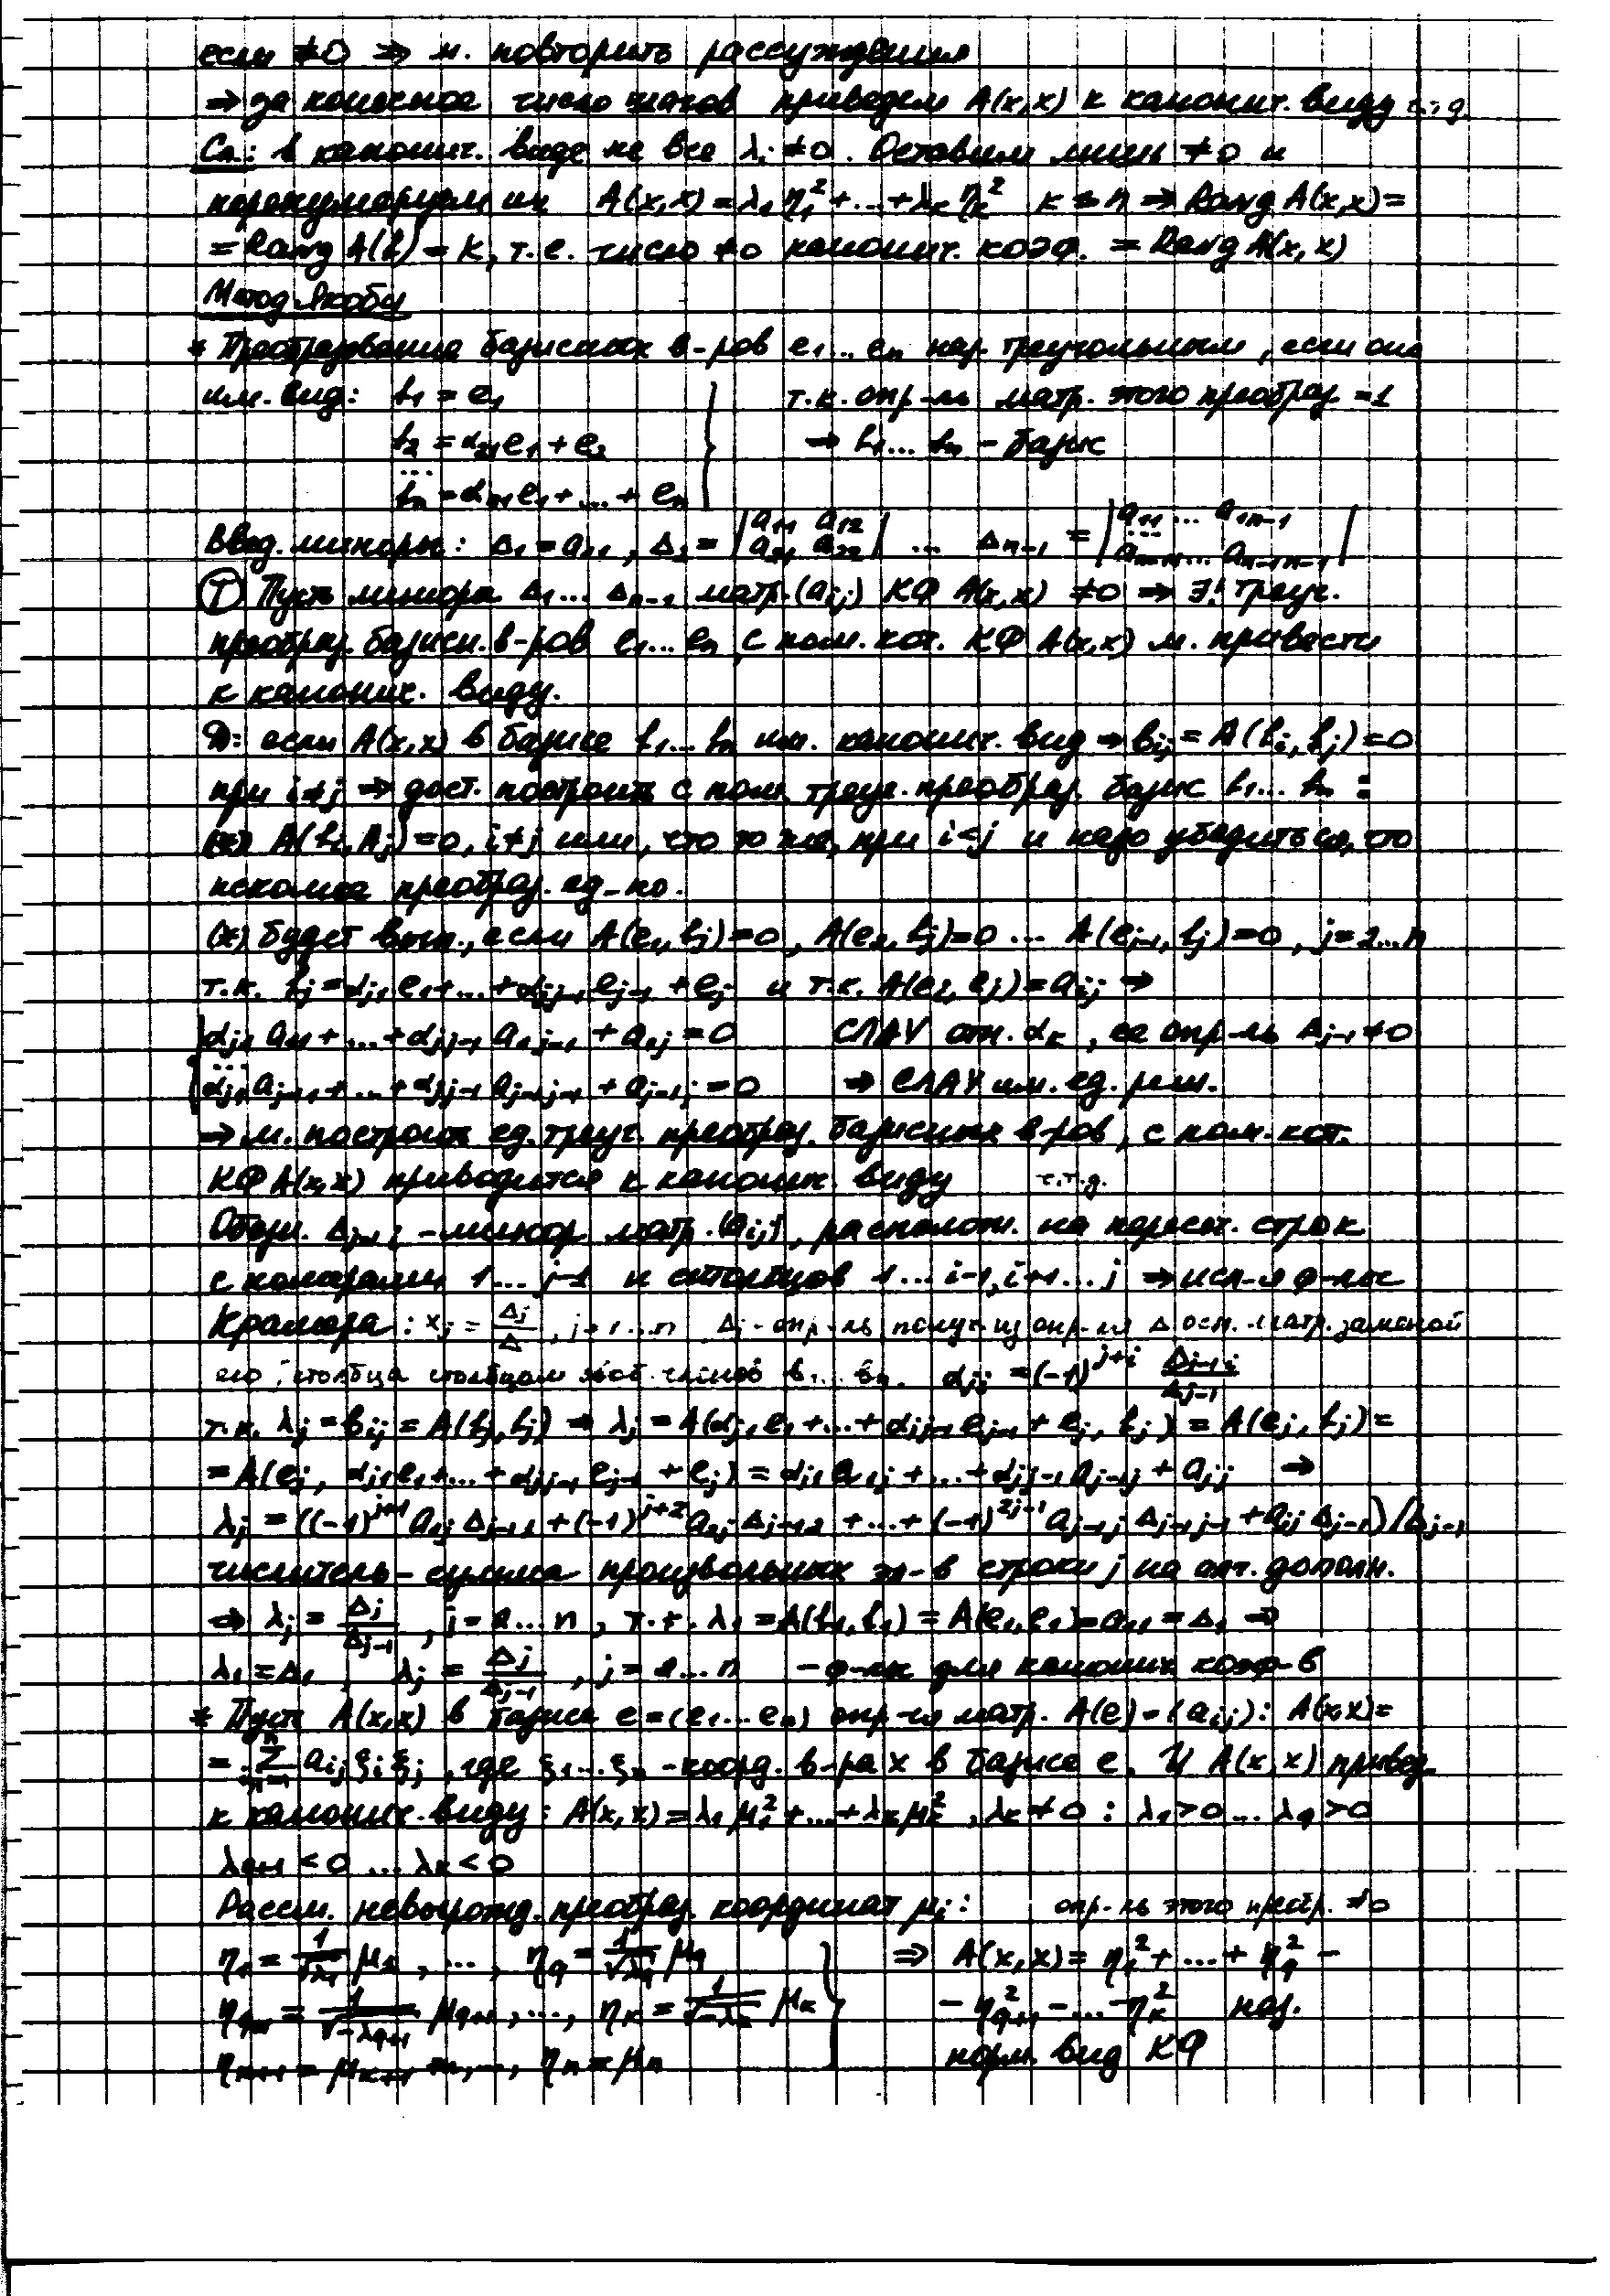 если ≠0 ⇒ м. повторить рассуждения
⇒ за конечное число шагов приведем A(x,x) к канонич. виду ч.т.д.
Сл.: в канонич. виде не все λi ≠0. Оставим лишь ≠0 и
перенумеруем их A(x,x) = λ1 η1² + ... + λk ηk² k ≤ n ⇒ Rang A(x,x) =
= Rang A(f) = k, т.е. число ≠0 канонич. коэф. = Rang A(x,x)
Метод Якоби
* Преобразование базисных в-ров e1... en наз. треугольным, если оно
им. вид: f1 = e1 т.к. опр-ль матр. этого преобраз. =1
f2 = α21 e1 + e2 ⇒ f1... fn - базис
...
fn = αn1 e1 + ... + en
Введ. миноры: Δ1 = a11, Δ2 = |a11 a12 a21 a22| ... Δn-1 = |a11 ... a1n-1 ... an-11 ... an-1n-1|
(Т) Пусть миноры Δ1... Δn-1 матр. (aij) КФ A(x,x) ≠0 ⇒ ∃! треуг.
преобраз. базисн. в-ров e1... en, с пом. кот. КФ A(x,x) м. привести
к канонич. виду.
Д: если A(x,x) в базисе f1... fn им. канонич. вид ⇒ bij = A(fi, fj) = 0
при i≠j ⇒ дост. построить с пом. треуг. преобраз. базис f1... fn :
(*) A(fi, fj) = 0, i≠j или, что то же, при i<j и надо убедиться, что
искомое преобраз. ед-но.
(*) будет вып., если A(e1, fj)=0, A(e2, fj)=0 ... A(ej-1, fj)=0, j=2...n
т.к. fj = αj1 e1 + ... + αjj-1 ej-1 + ej и т.к. A(ei, ej) = aij ⇒
αj1 a11 + ... + αjj-1 a1j-1 + a1j = 0 СЛАУ отн. αk, ее опр-ль Δj-1 ≠0
...
αj1 aj-11 + ... + αjj-1 aj-1j-1 + aj-1j = 0 ⇒ СЛАУ им. ед. реш.
⇒ м. построить ед. треуг. преобраз. базисных в-ров, с пом. кот.
КФ A(x,x) приводится к канонич. виду ч.т.д.
Обозн. Δj-1i - минор матр. (aij), располож. на пересеч. строк
с номерами 1... j-1 и столбцов 1... i-1, i+1... j ⇒ исп-я ф-лы
Крамера: xj = Δj/Δ, j=1...n Δj - опр-ль получ. из опр-ля Δ осн. матр. заменой
его j столбца столбцом своб. членов b1... bn. αji = (-1)^j+i Δj-1i/Δj-1
т.к. λj = bjj = A(fj, fj) ⇒ λj = A(αj1 e1 + ... + αjj-1 ej-1 + ej, fj) = A(ej, fj) =
= A(ej, αj1 e1 + ... + αjj-1 ej-1 + ej) = αj1 a1j + ... + αjj-1 aj-1j + ajj ⇒
λj = ((-1)^j+1 a1j Δj-11 + (-1)^j+2 a2j Δj-12 + ... + (-1)^2j-1 aj-1j Δj-1j-1 + ajj Δj-1)/Δj-1
числитель - сумма произвольных эл-в строки j на алг. дополн.
⇒ λj = Δj/Δj-1, j=2...n, т.к. λ1 = A(f1, f1) = A(e1, e1) = a11 = Δ1 ⇒
λ1 = Δ1 λj = Δj/Δj-1, j=2...n - ф-лы для канонич. коэф-в
* Пусть A(x,x) в базисе e = (e1... en) опр-ся матр. A(e) = (aij): A(x,x) =
= Σ aij ξi ξj, где ξ1... ξn - коорд. в-ра x в базисе e. И A(x,x) привед.
к канонич. виду: A(x,x) = λ1 μ1² + ... + λk μk², λk ≠0 : λ1>0 ... λq>0
λq+1 <0 ... λk <0
Рассм. невырожд. преобраз. координат μi: опр-ль этого преобр. ≠0
η1 = 1/√λ1 μ1, ..., ηq = 1/√λq μq ⇒ A(x,x) = η1² + ... + ηq² -
ηq+1 = 1/√-λq+1 μq+1, ..., ηk = 1/√-λk μk - ηq+1² - ... - ηk² наз.
ηk+1 = μk+1, ..., ηn = μn норм. вид КФ